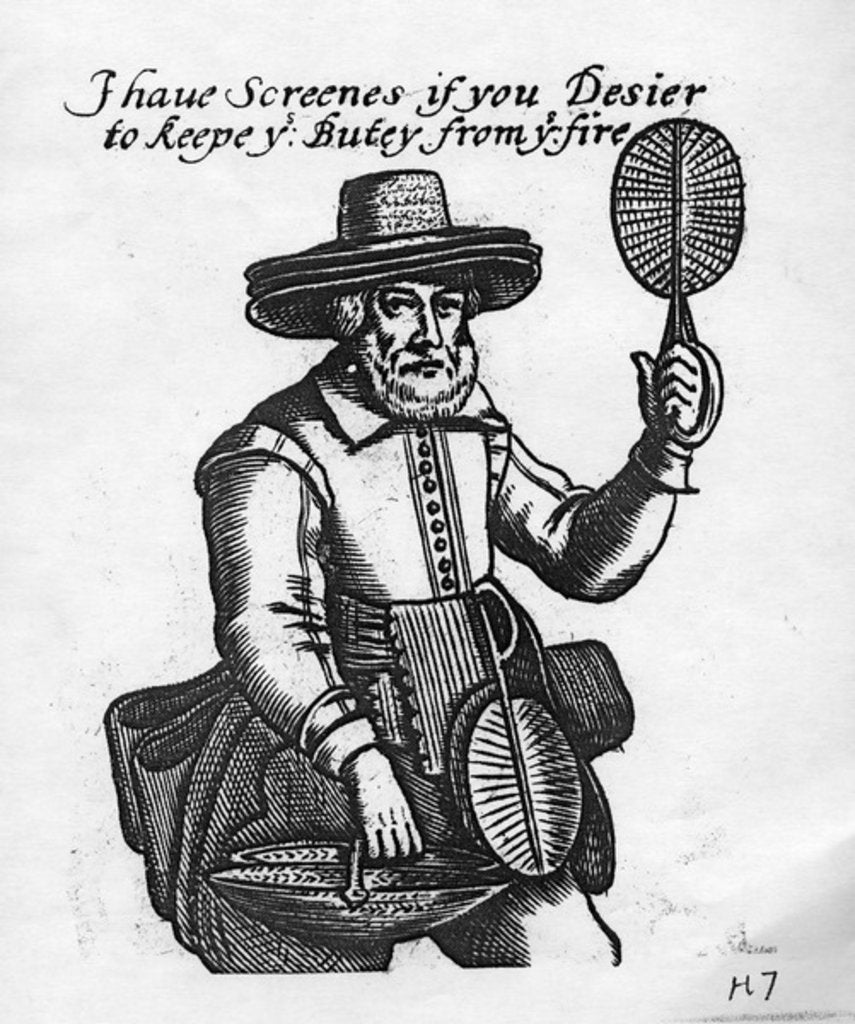 I haue Screenes if you Desier
to keepe yͬ: Butey from yͤ: fire
H7